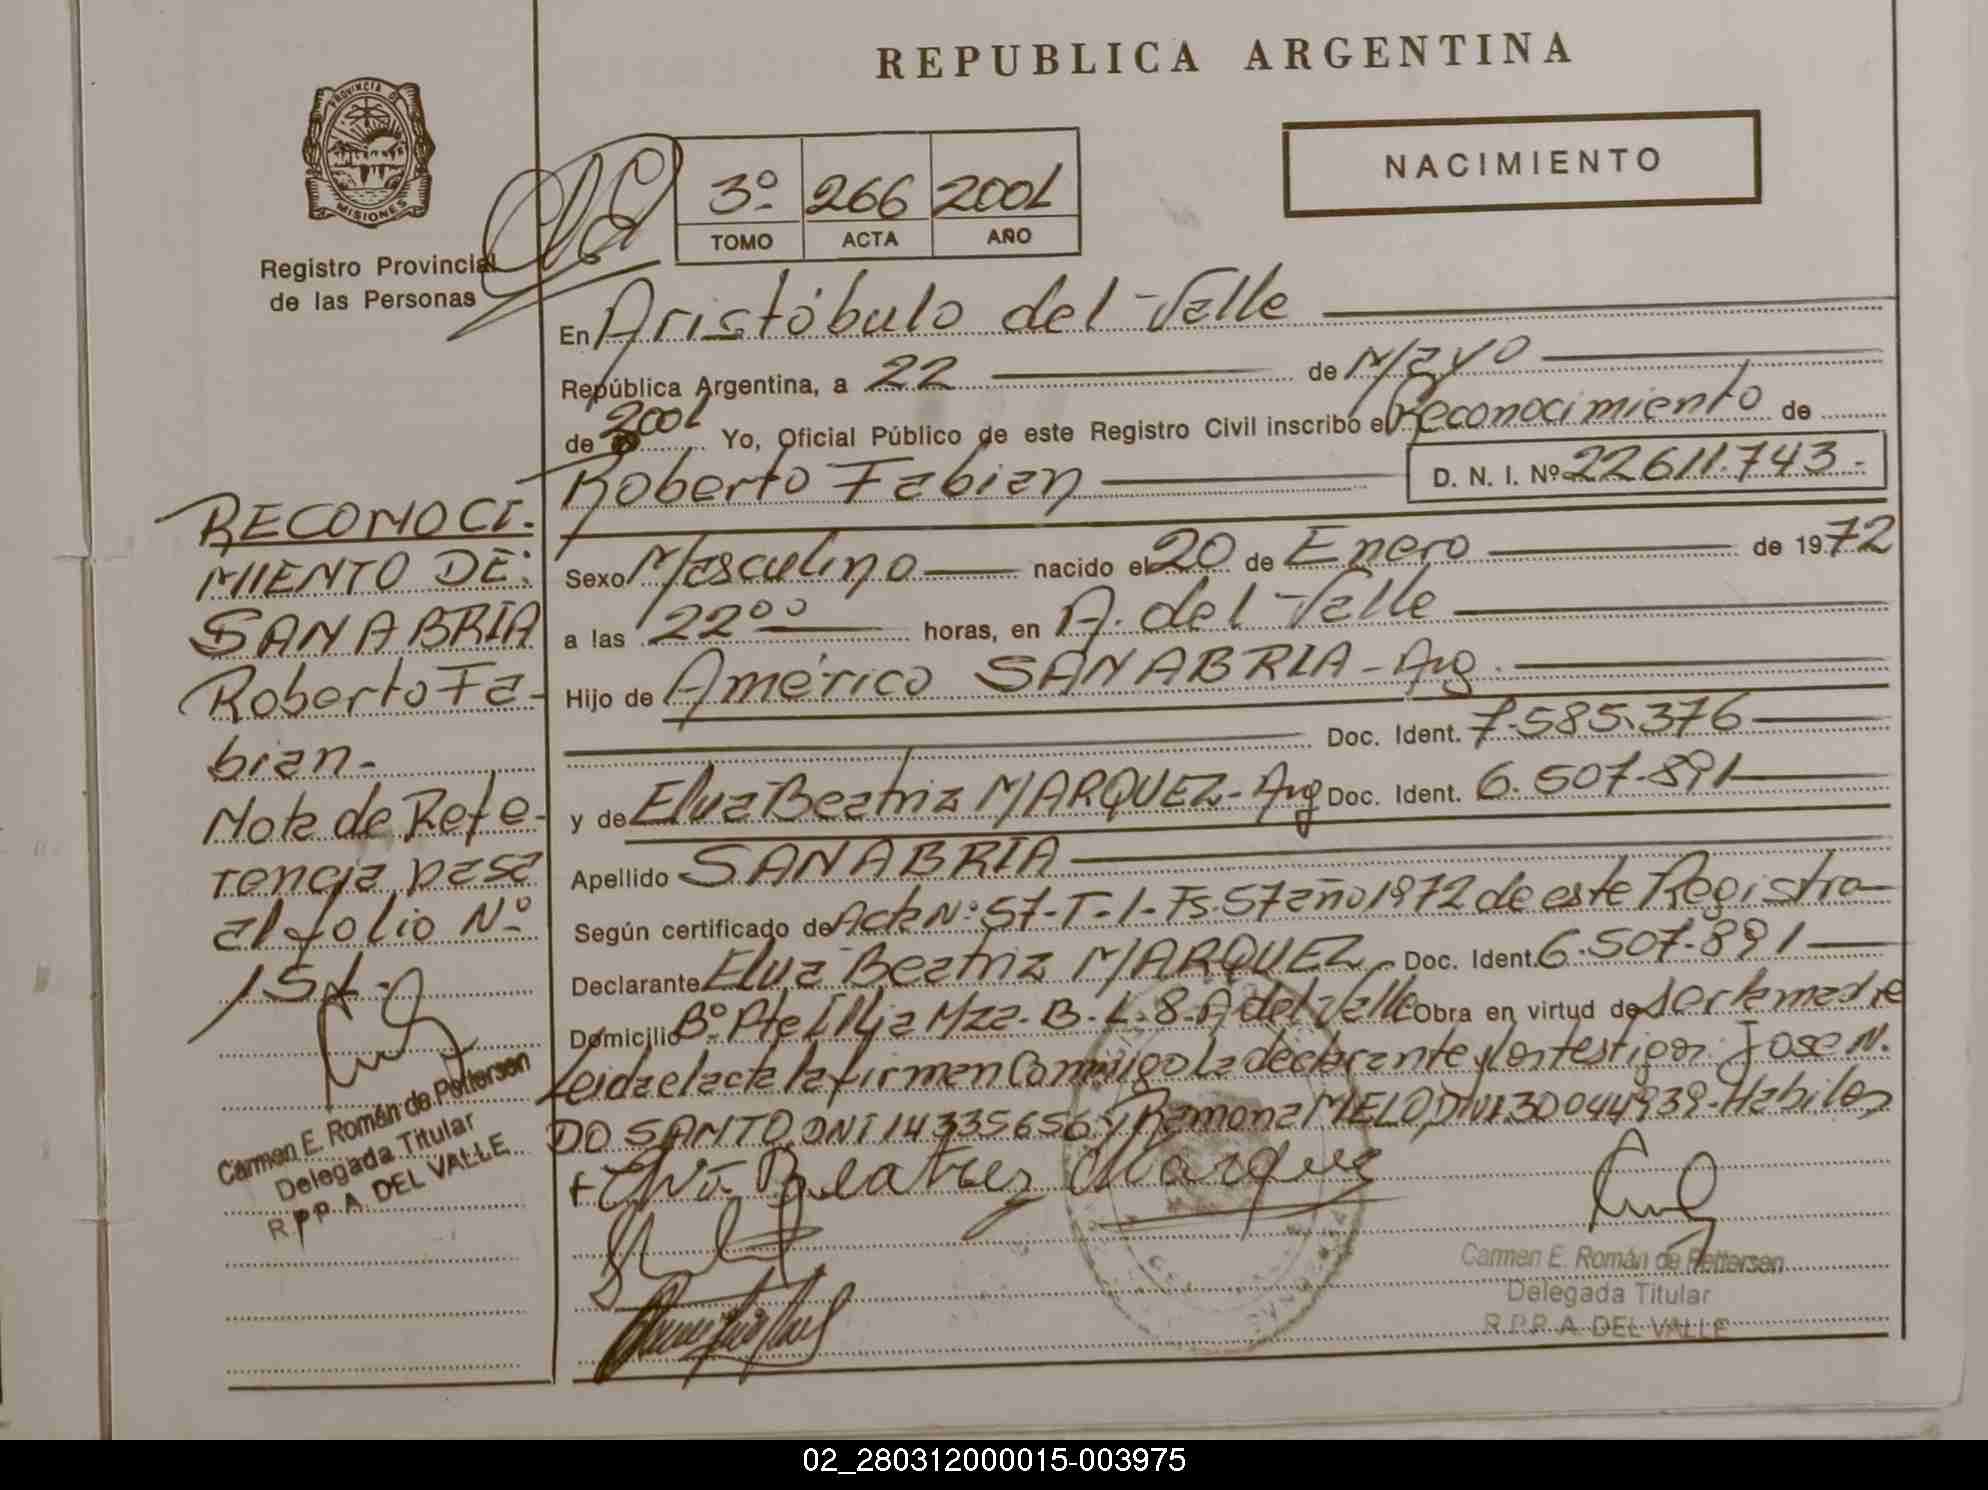 REPUBLICA ARGENTINA
NACIMIENTO
PROVINCIA DE
MISIONES
Registro Provincial
de las Personas
3º 266 2001
TOMO ACTA AÑO
En Aristóbulo del Valle
República Argentina, a 22 de Mayo
de 2001 Yo, Oficial Público de este Registro Civil inscribo el Reconocimiento de
Roberto Fabian D. N. I. Nº 22611.743-
Sexo Masculino nacido el 20 de Enero de 1972
a las 22⁰⁰ horas, en A. del Valle
Hijo de Américo SANABRIA - Arg.
Doc. Ident. 7.585.376
y de Elva Beatriz MARQUEZ - Arg Doc. Ident. 6.507.891
Apellido SANABRIA
Según certificado de Acta Nº 57-T-1-Fs.57 año 1972 de este Registro
Declarante Elva Beatriz MARQUEZ Doc. Ident. 6.507.891
Domicilio Bº Pte Illia Mza-B-L-8-A del Valle Obra en virtud de ser la madre
Leida el acta la firman Conmigo la declarante y los testigos: Jose N.
DO SANTO DNI 14335656 y Ramona MELO DNI 30044939-Habiles
Elva Beatriz Marquez
Carmen E. Román de Pettersen
Delegada Titular
R.P.P. A. DEL VALLE
RECONOCI-
MIENTO DE:
SANABRIA
Roberto Fa-
bian-
Nota de Refe-
rencia pasa
al folio Nº
151-
Carmen E. Román de Pettersen
Delegada Titular
R.P.P. A. DEL VALLE
02_280312000015-003975